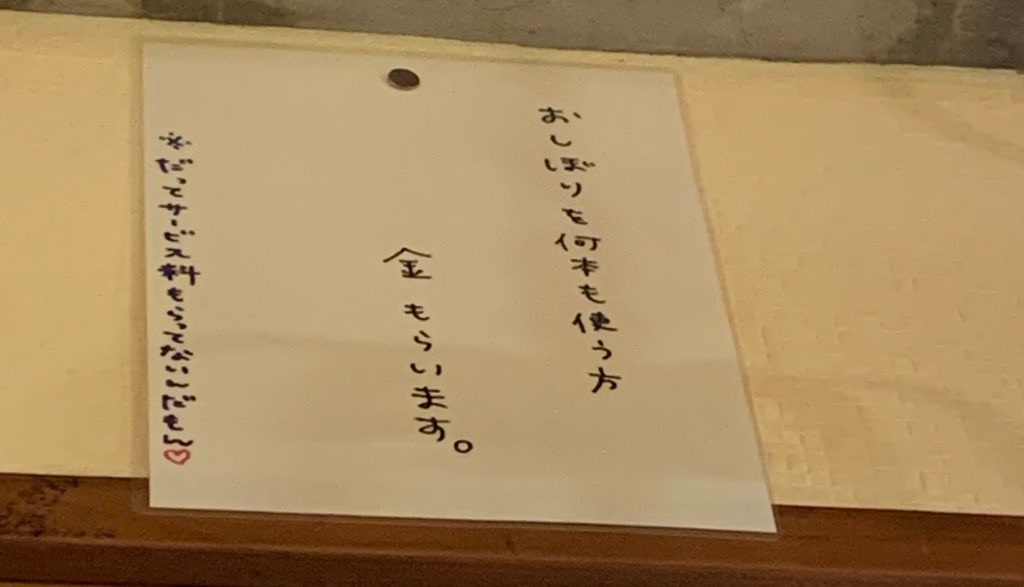 おしぼりを何本も使う方
金もらいます。
※だってサービス料もらってないんだも〜ん♡